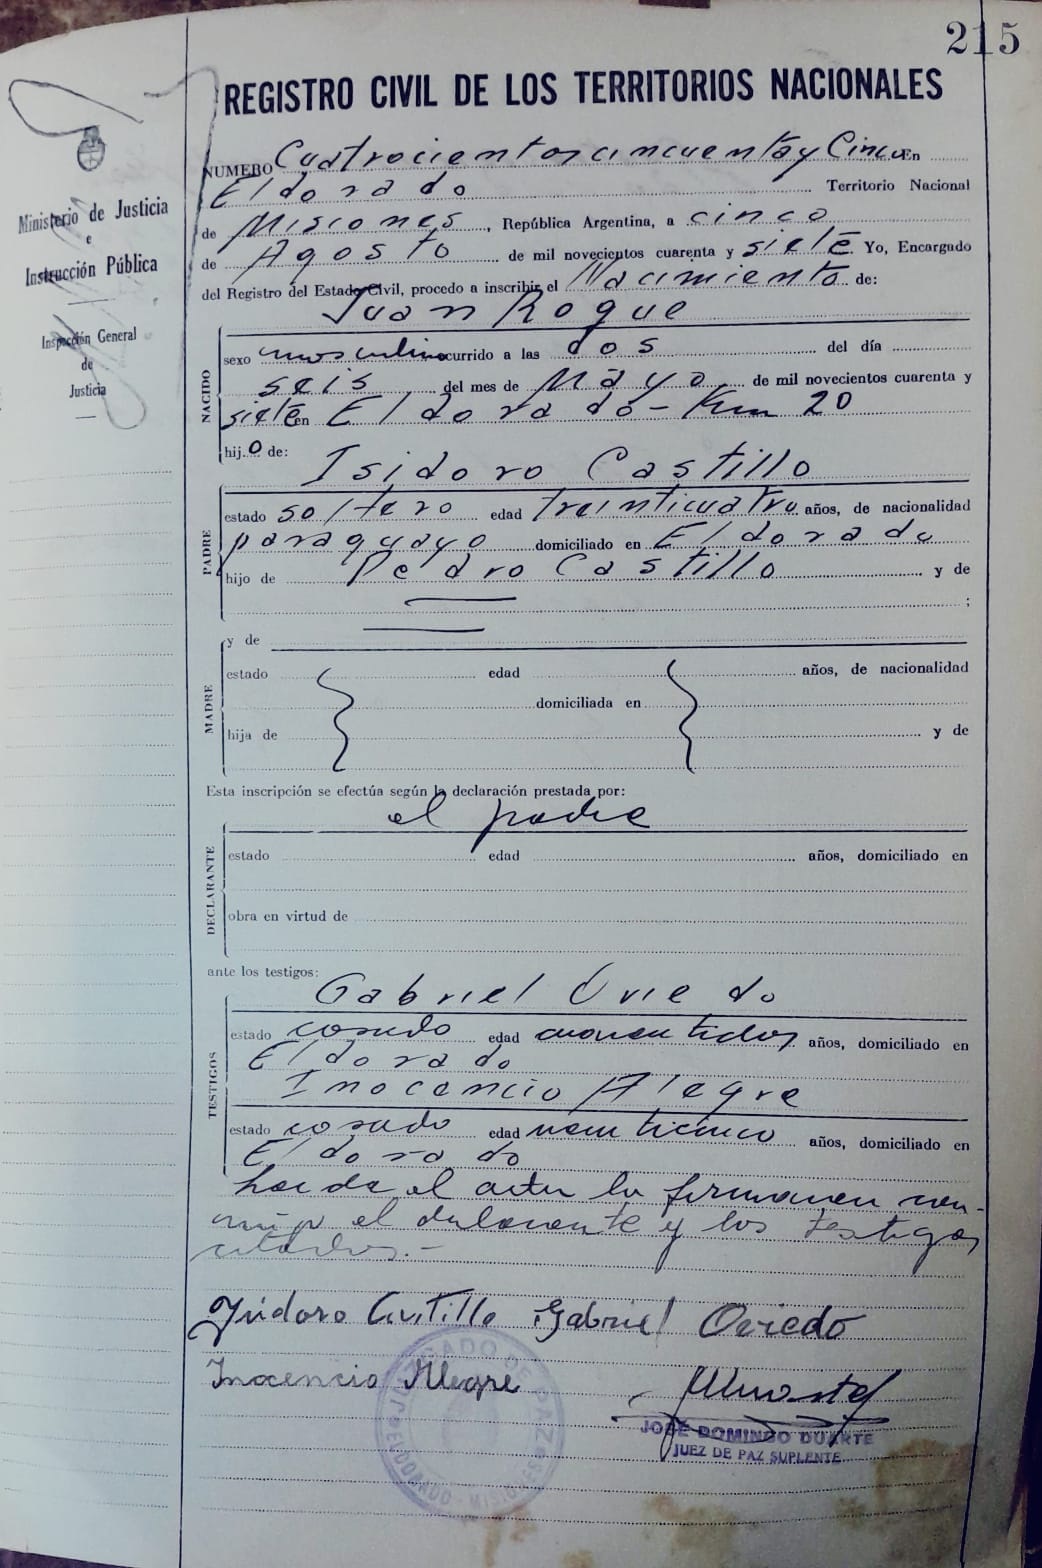 215
REGISTRO CIVIL DE LOS TERRITORIOS NACIONALES
Ministerio de Justicia
e
Instrucción Pública
Inspección General
de
Justicia
NUMERO Cuatrocientos cincuenta y Cinco En
Eldorado Territorio Nacional
de Misiones, República Argentina, a cinco
de Agosto de mil novecientos cuarenta y siete Yo, Encargado
del Registro del Estado Civil, procedo a inscribir el Nacimiento de:
Juan Roque
NACIDO
sexo masculino ocurrido a las dos del día
seis del mes de Mayo de mil novecientos cuarenta y
siete en Eldorado - Km 20
hijo de:
Isidoro Castillo
PADRE
estado soltero edad treinticuatro años, de nacionalidad
paraguayo domiciliado en Eldorado
hijo de Pedro Castillo y de
;
MADRE
y de
estado edad años, de nacionalidad
domiciliada en
hija de y de
Esta inscripción se efectúa según la declaración prestada por:
el padre
DECLARANTE
estado edad años, domiciliado en
obra en virtud de
ante los testigos:
Gabriel Oviedo
TESTIGOS
estado casado edad cuarentidos años, domiciliado en
Eldorado
Inocencio Alegre
estado casado edad años, domiciliado en
Eldorado
Leida el acta la firmaron con-
migo el declarante y los testigos
citados.-
Ysidoro Castillo Gabriel Oviedo
Inocencio Alegre
JUZGADO DE PAZ
ELDORADO - MISIONES
JOSÉ DOMINGO DUARTE
JUEZ DE PAZ SUPLENTE